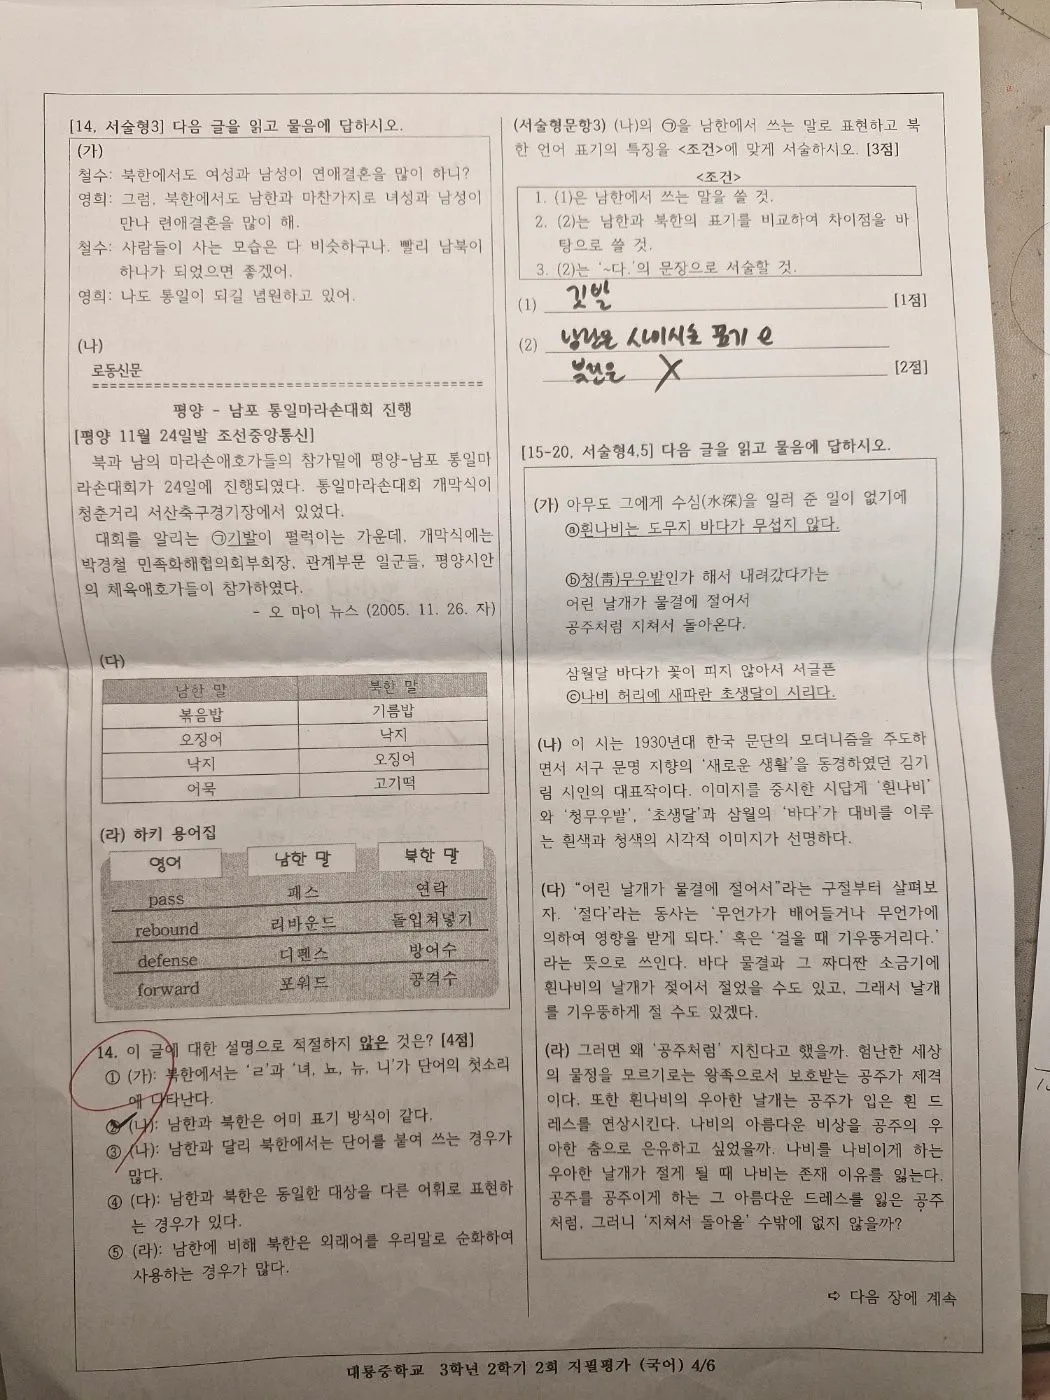 [14, 서술형3] 다음 글을 읽고 물음에 답하시오.
(가)
철수: 북한에서도 여성과 남성이 연애결혼을 많이 하니?
영희: 그럼, 북한에서도 남한과 마찬가지로 녀성과 남성이
만나 련애결혼을 많이 해.
철수: 사람들이 사는 모습은 다 비슷하구나. 빨리 남북이
하나가 되었으면 좋겠어.
영희: 나도 통일이 되길 념원하고 있어.
(나)
로동신문
==================================================
평양 - 남포 통일마라손대회 진행
[평양 11월 24일발 조선중앙통신]
북과 남의 마라손애호가들의 참가밑에 평양-남포 통일마
라손대회가 24일에 진행되였다. 통일마라손대회 개막식이
청춘거리 서산축구경기장에서 있었다.
대회를 알리는 ㉠기발이 펄럭이는 가운데, 개막식에는
박경철 민족화해협의회부회장, 관계부문 일군들, 평양시안
의 체육애호가들이 참가하였다.
- 오 마이 뉴스 (2005. 11. 26. 자)
(다)
남한 말 북한 말
볶음밥 기름밥
오징어 낙지
낙지 오징어
어묵 고기떡
(라) 하키 용어집
영어 남한 말 북한 말
pass 패스 연락
rebound 리바운드 돌입쳐넣기
defense 디펜스 방어수
forward 포워드 공격수
14. 이 글에 대한 설명으로 적절하지 않은 것은? [4점]
① (가): 북한에서는 'ㄹ'과 '녀, 뇨, 뉴, 니'가 단어의 첫소리
에 나타난다.
② (나): 남한과 북한은 어미 표기 방식이 같다.
③ (나): 남한과 달리 북한에서는 단어를 붙여 쓰는 경우가
많다.
④ (다): 남한과 북한은 동일한 대상을 다른 어휘로 표현하
는 경우가 있다.
⑤ (라): 남한에 비해 북한은 외래어를 우리말로 순화하여
사용하는 경우가 많다.
(서술형문항3) (나)의 ㉠을 남한에서 쓰는 말로 표현하고 북
한 언어 표기의 특징을 <조건>에 맞게 서술하시오. [3점]
<조건>
1. (1)은 남한에서 쓰는 말을 쓸 것.
2. (2)는 남한과 북한의 표기를 비교하여 차이점을 바
탕으로 쓸 것.
3. (2)는 '~다.'의 문장으로 서술할 것.
(1) 깃발 [1점]
(2) 남한은 사이시옷 표기 o
북한은 X [2점]
[15-20, 서술형4,5] 다음 글을 읽고 물음에 답하시오.
(가) 아무도 그에게 수심(水深)을 일러 준 일이 없기에
ⓐ흰나비는 도무지 바다가 무섭지 않다.
ⓑ청(靑)무우밭인가 해서 내려갔다가는
어린 날개가 물결에 절어서
공주처럼 지쳐서 돌아온다.
삼월달 바다가 꽃이 피지 않아서 서글픈
ⓒ나비 허리에 새파란 초생달이 시리다.
(나) 이 시는 1930년대 한국 문단의 모더니즘을 주도하
면서 서구 문명 지향의 '새로운 생활'을 동경하였던 김기
림 시인의 대표작이다. 이미지를 중시한 시답게 '흰나비'
와 '청무우밭', '초생달'과 삼월의 '바다'가 대비를 이루
는 흰색과 청색의 시각적 이미지가 선명하다.
(다) "어린 날개가 물결에 절어서"라는 구절부터 살펴보
자. '절다'라는 동사는 '무언가가 배어들거나 무언가에
의하여 영향을 받게 되다.' 혹은 '걸을 때 기우뚱거리다.'
라는 뜻으로 쓰인다. 바다 물결과 그 짜디짠 소금기에
흰나비의 날개가 젖어서 절었을 수도 있고, 그래서 날개
를 기우뚱하게 절 수도 있겠다.
(라) 그러면 왜 '공주처럼' 지친다고 했을까. 험난한 세상
의 물정을 모르기로는 왕족으로서 보호받는 공주가 제격
이다. 또한 흰나비의 우아한 날개는 공주가 입은 흰 드
레스를 연상시킨다. 나비의 아름다운 비상을 공주의 우
아한 춤으로 은유하고 싶었을까. 나비를 나비이게 하는
우아한 날개가 절게 될 때 나비는 존재 이유를 잃는다.
공주를 공주이게 하는 그 아름다운 드레스를 잃은 공주
처럼, 그러니 '지쳐서 돌아올' 수밖에 없지 않을까?
⇨ 다음 장에 계속
대룡중학교 3학년 2학기 2회 지필평가 (국어) 4/6